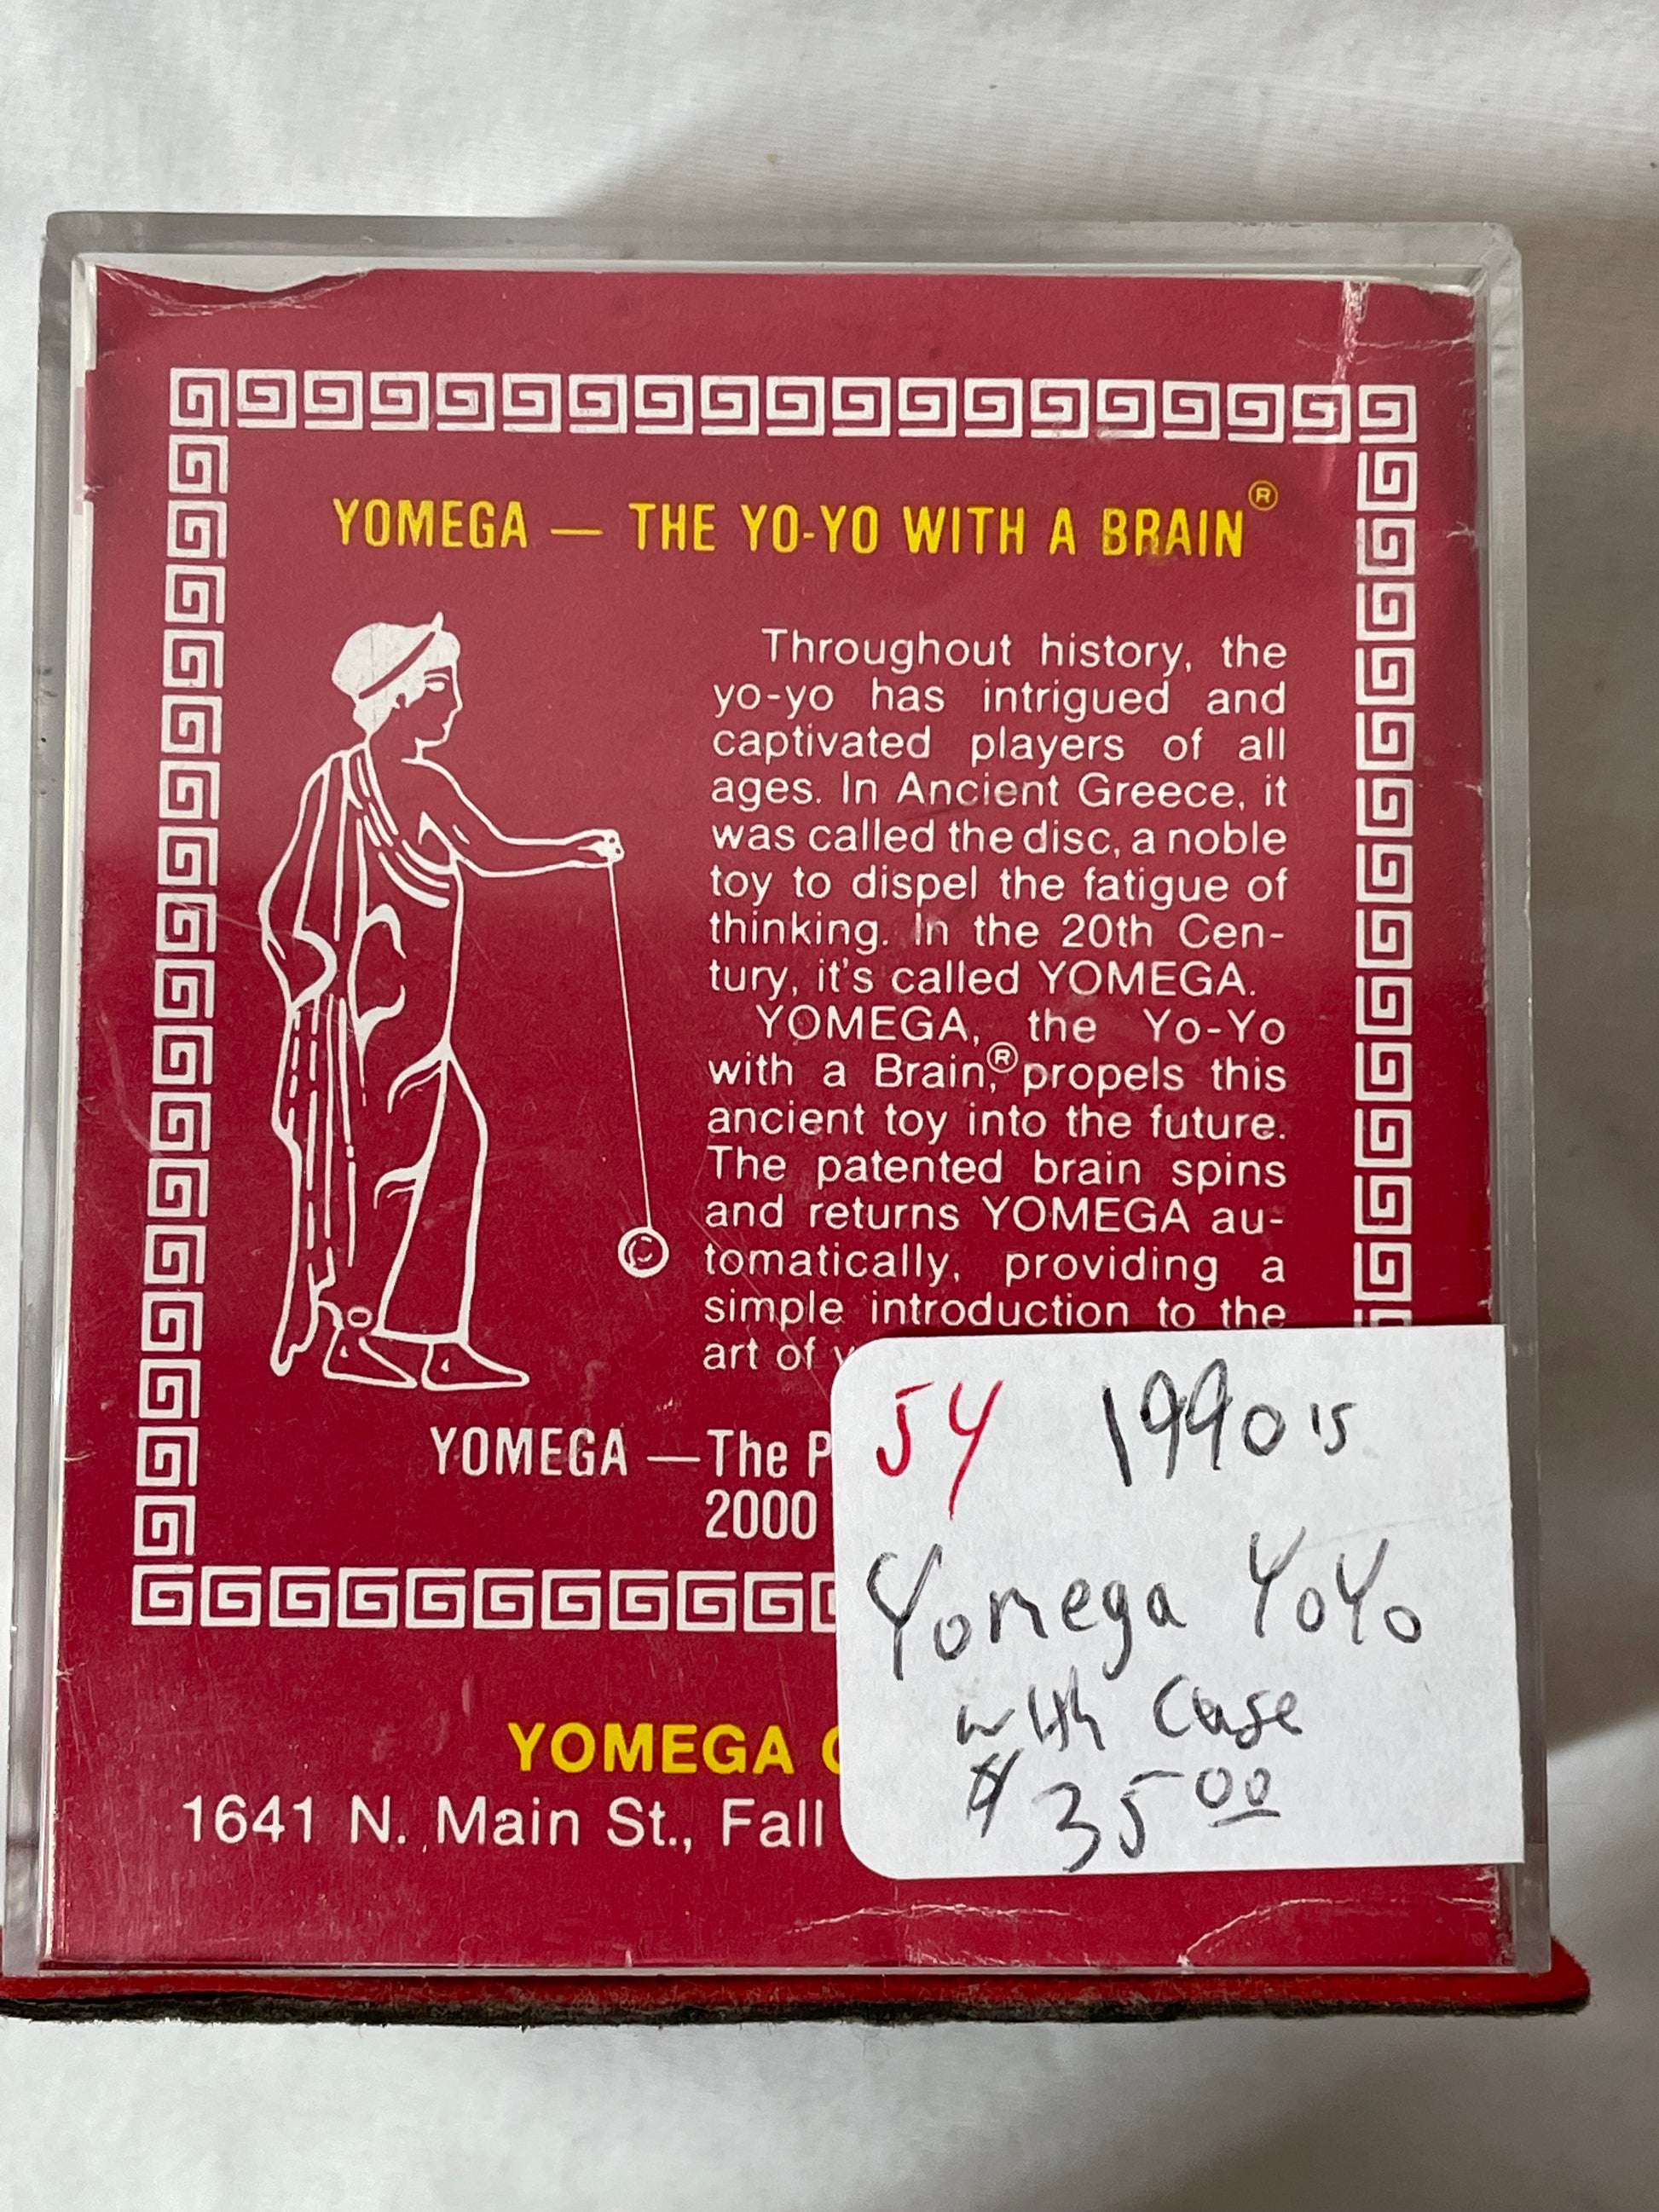 YOMEGA — THE YO-YO WITH A BRAIN®
Throughout history, the
yo-yo has intrigued and
captivated players of all
ages. In Ancient Greece, it
was called the disc, a noble
toy to dispel the fatigue of
thinking. In the 20th Cen-
tury, it's called YOMEGA.
YOMEGA, the Yo-Yo
with a Brain,® propels this
ancient toy into the future.
The patented brain spins
and returns YOMEGA au-
tomatically, providing a
simple introduction to the
art of
YOMEGA — The
2000
YOMEGA
1641 N. Main St., Fall
JY 1990's
Yomega YoYo
with Case
$ 35 00